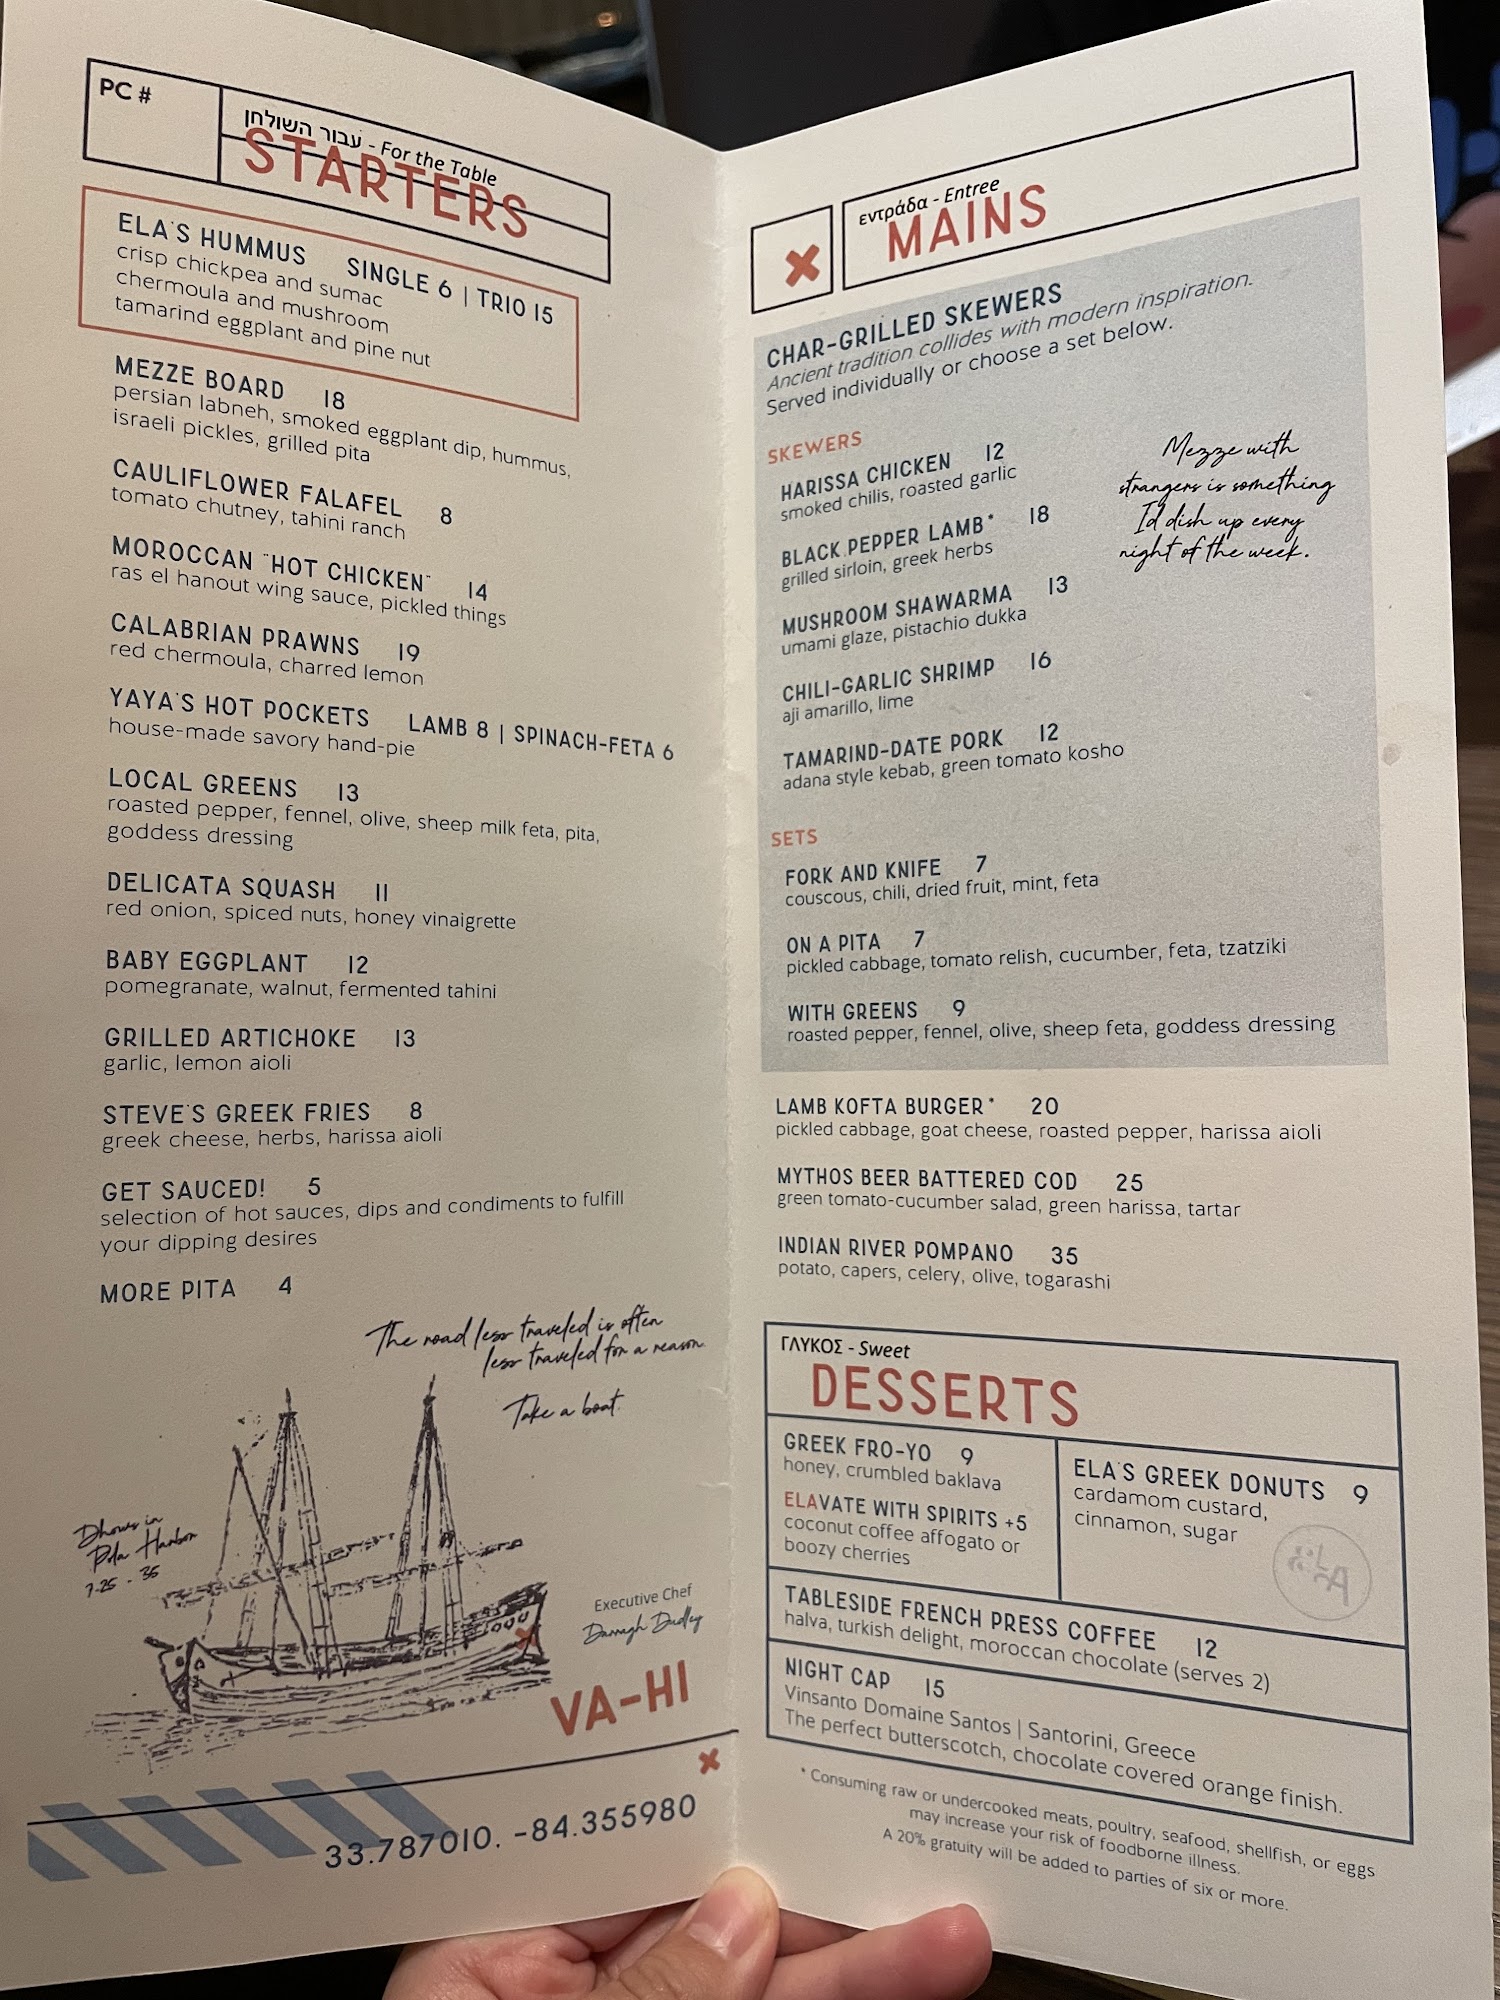 PC #
עבור השולחן - For the Table
STARTERS
ELA'S HUMMUS SINGLE 6 | TRIO 15
crisp chickpea and sumac
chermoula and mushroom
tamarind eggplant and pine nut
MEZZE BOARD 18
persian labneh, smoked eggplant dip, hummus,
israeli pickles, grilled pita
CAULIFLOWER FALAFEL 8
tomato chutney, tahini ranch
MOROCCAN "HOT CHICKEN" 14
ras el hanout wing sauce, pickled things
CALABRIAN PRAWNS 19
red chermoula, charred lemon
YAYA'S HOT POCKETS LAMB 8 | SPINACH-FETA 6
house-made savory hand-pie
LOCAL GREENS 13
roasted pepper, fennel, olive, sheep milk feta, pita,
goddess dressing
DELICATA SQUASH 11
red onion, spiced nuts, honey vinaigrette
BABY EGGPLANT 12
pomegranate, walnut, fermented tahini
GRILLED ARTICHOKE 13
garlic, lemon aioli
STEVE'S GREEK FRIES 8
greek cheese, herbs, harissa aioli
GET SAUCED! 5
selection of hot sauces, dips and condiments to fulfill
your dipping desires
MORE PITA 4
The road less traveled is often
less traveled for a reason.
Take a boat.
Dhows in
Pola Harbor
7.25 - 36
Executive Chef
Darragh Dudley
VA-HI
33.787010. -84.355980
εντράδα - Entree
MAINS
CHAR-GRILLED SKEWERS
Ancient tradition collides with modern inspiration.
Served individually or choose a set below.
SKEWERS
HARISSA CHICKEN 12
smoked chilis, roasted garlic
BLACK PEPPER LAMB* 18
grilled sirloin, greek herbs
MUSHROOM SHAWARMA 13
umami glaze, pistachio dukka
CHILI-GARLIC SHRIMP 16
aji amarillo, lime
TAMARIND-DATE PORK 12
adana style kebab, green tomato kosho
Mezze with
strangers is something
I'd dish up every
night of the week.
SETS
FORK AND KNIFE 7
couscous, chili, dried fruit, mint, feta
ON A PITA 7
pickled cabbage, tomato relish, cucumber, feta, tzatziki
WITH GREENS 9
roasted pepper, fennel, olive, sheep feta, goddess dressing
LAMB KOFTA BURGER* 20
pickled cabbage, goat cheese, roasted pepper, harissa aioli
MYTHOS BEER BATTERED COD 25
green tomato-cucumber salad, green harissa, tartar
INDIAN RIVER POMPANO 35
potato, capers, celery, olive, togarashi
ΓΛΥΚΟΣ - Sweet
DESSERTS
GREEK FRO-YO 9
honey, crumbled baklava
ELAVATE WITH SPIRITS +5
coconut coffee affogato or
boozy cherries
ELA'S GREEK DONUTS 9
cardamom custard,
cinnamon, sugar
ELA
TABLESIDE FRENCH PRESS COFFEE 12
halva, turkish delight, moroccan chocolate (serves 2)
NIGHT CAP 15
Vinsanto Domaine Santos | Santorini, Greece
The perfect butterscotch, chocolate covered orange finish.
* Consuming raw or undercooked meats, poultry, seafood, shellfish, or eggs
may increase your risk of foodborne illness.
A 20% gratuity will be added to parties of six or more.